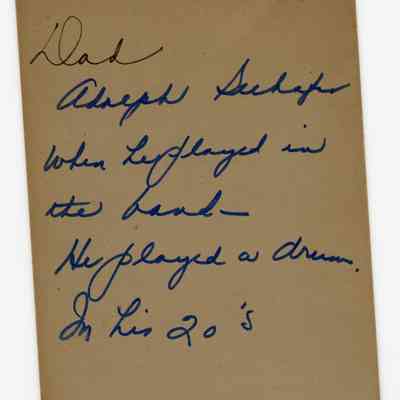 Dad
Adolph
when he played in
the band—
He played a drum.
In his 20's